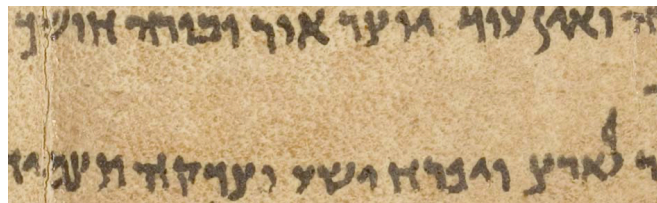 ואין עוד יוצר אור ובורה חושך
לארץ ויפרח ישע וצדקה